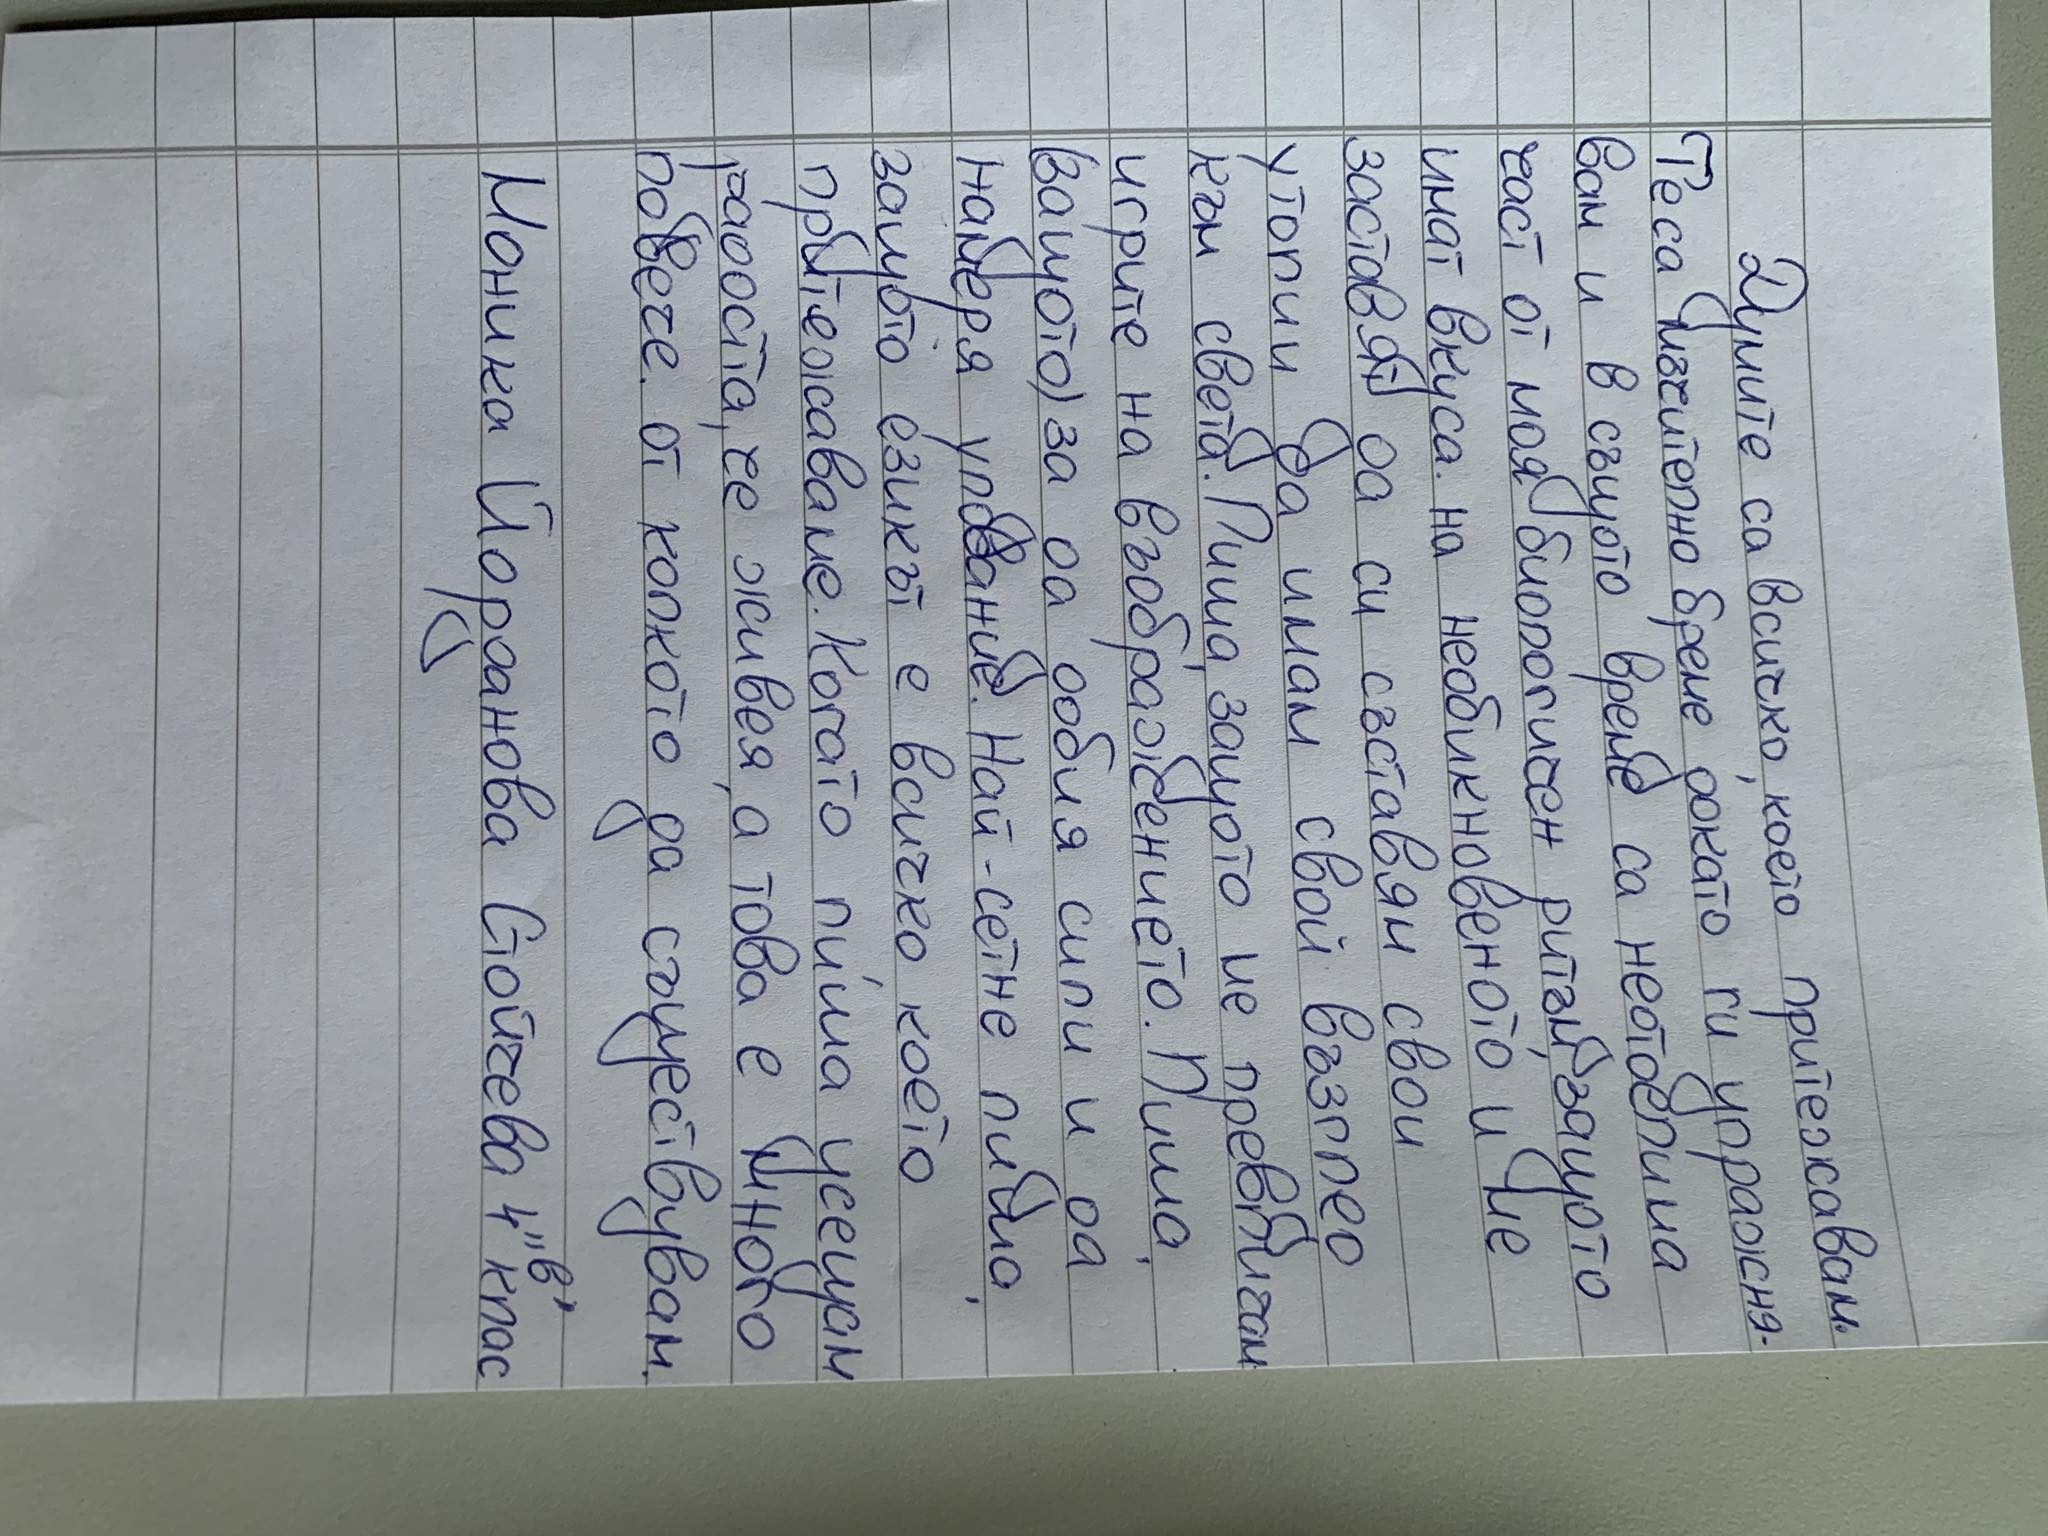 Думите са всичко, което притежавам.
Те са мъчително бреме докато ги упражня-
вам и в същото време са неотделима
част от моя биологичен ритъм, защото
имат вкуса на необикновеното и ме
заставят да си съставям свои
утопии да имам свой възглед
към света. Пиша, защото ме превличам
игрите на въображението. Пиша,
(защото) за да добия сили и да
намеря упование. Най-сетне пиша,
защото езикът е всичко което
притежаваме. Когато пиша усещам
радостта, че живея, а това е много
повече от колкото да съществувам.
Моника Йорданова Стойчева 4 "в" клас